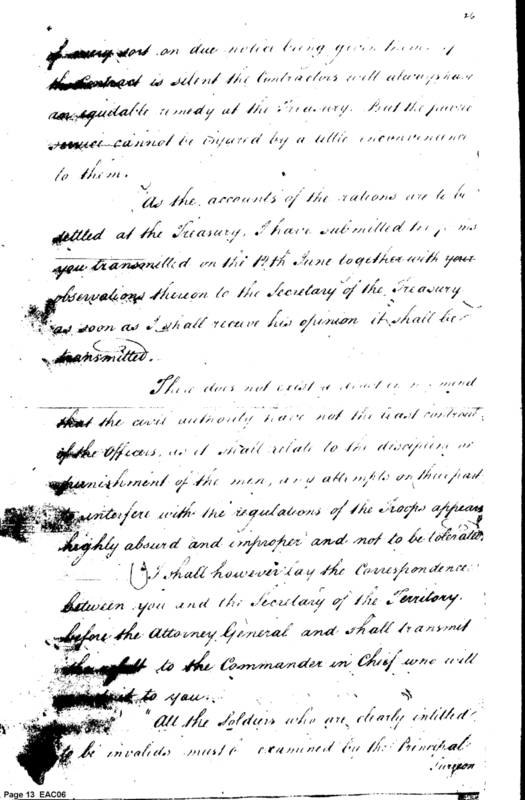 26
of every sort on due notice being given them. If
the Contract is silent the Contractors will always have
an equitable remedy at the Treasury. But the public
service cannot be injured by a little inconvenience
to them.
"As the accounts of the rations are to be
settled at the Treasury, I have submitted the forms
you transmitted on the 19th June together with your
observations thereon to the Secretary of the Treasury
as soon as I shall receive his opinion it shall be
transmitted.
There does not exist a doubt in my mind
that the civil authority have not the least control
of the Officers, as it shall relate to the discipline or
punishment of the men, any attempts on their part
to interfere with the regulations of the Troops appears
highly absurd and improper and not to be tolerated.
I shall however lay the Correspondence
between you and the Secretary of the Territory
before the Attorney General and shall transmit
the result to the Commander in Chief who will
to you.
"All the Soldiers who are clearly intitled
to be invalids must be examined by the Principal
Surgeon
Page 13 EAC06